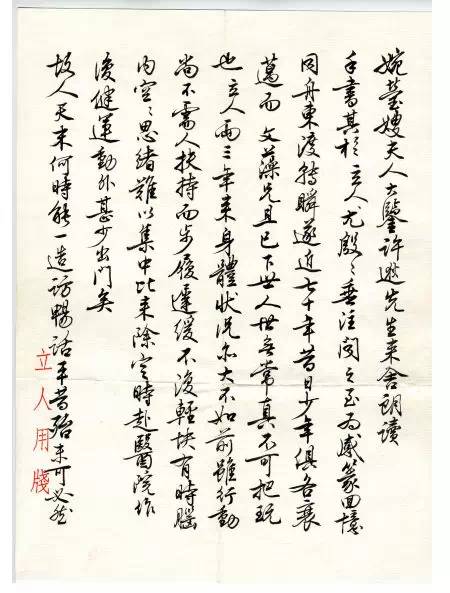 婉瑩嫂夫人大鑒許逖先生来舍朗讀
手書其於立人尤殷々垂注聞之至为感篆回憶
同舟東渡轉瞬遂近七十年昔日少年俱各衰
邁而文藻兄且已下世人世無常真不可把玩
也立人兩三年来身體狀況亦大不如前雖行動
尚不需人扶持而步履遲緩不復輕快有時腦
内空々思緒難以集中比来除定時赴醫院作
復健運動外甚少出門矣
故人天末何時能一造訪暢話平昔殆未可必然
立人用牋